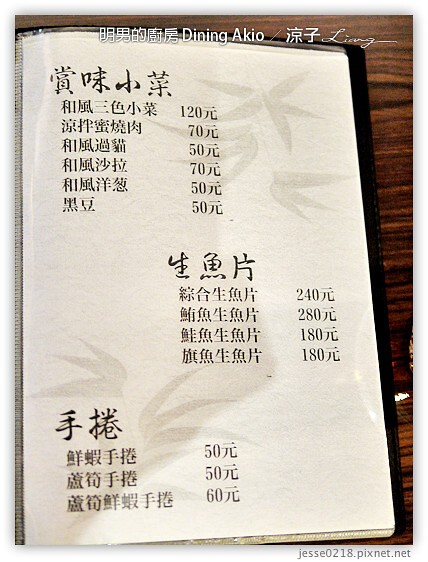 明男的廚房 Dining Akio ／ 涼子 Liang
賞味小菜
和風三色小菜 120元
涼拌蜜燒肉 70元
和風過貓 50元
和風沙拉 70元
和風洋葱 50元
黑豆 50元
生魚片
綜合生魚片 240元
鮪魚生魚片 280元
鮭魚生魚片 180元
旗魚生魚片 180元
手捲
鮮蝦手捲 50元
蘆筍手捲 50元
蘆筍鮮蝦手捲 60元
jesse0218.pixnet.net